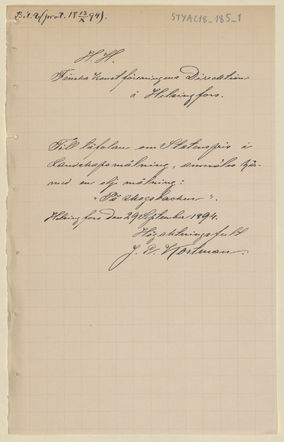 Bil. 2/prot. 15 13/X 94).
STYA18_185_1
H. H.
Finska Konstföreningens Direktion
à Helsingfors.
Till täflan om Statenspris i
Landskapsmålning, anmäles här-
med en olj målning:
"På skogsbacken".
Helsingfors den 29 September 1894.
Högaktningsfullt